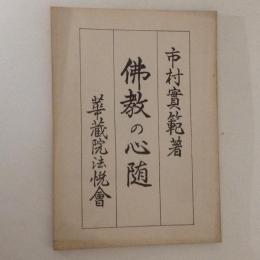 市村實範著
佛教の心随
華藏院法悦會